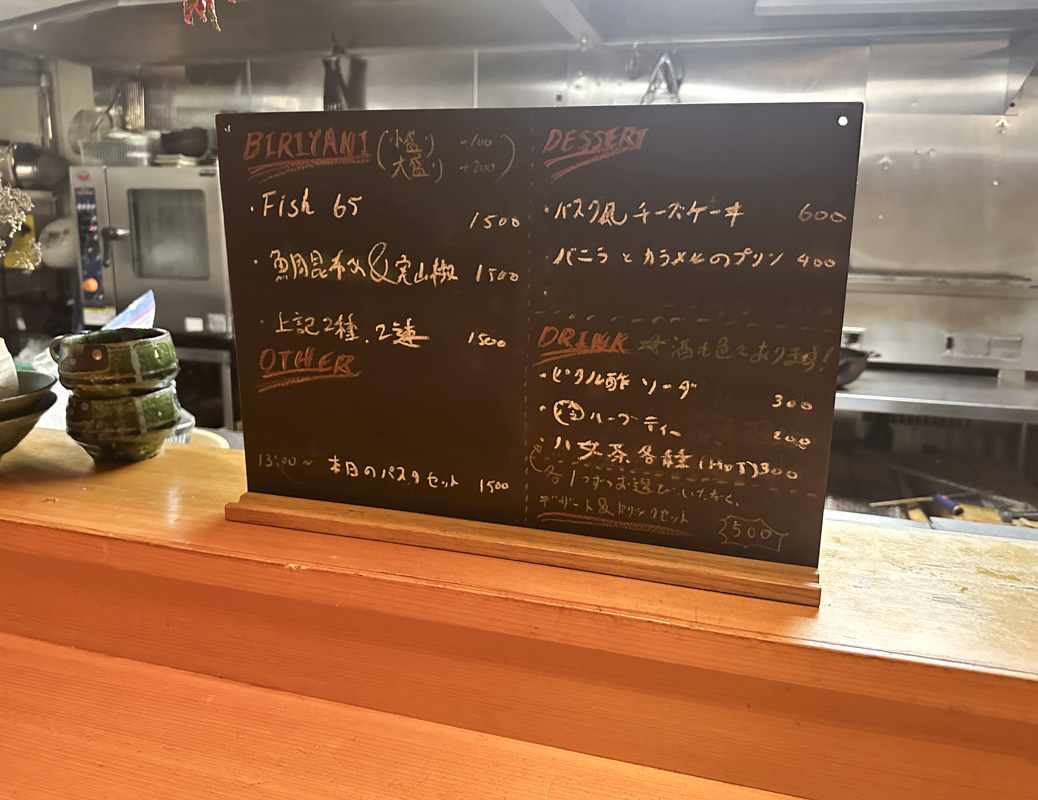 BIRIYANI (小盛り -100
大盛り +200)
・Fish 65 1500
・魚周昆布〆&実山椒 1500
・上記2種 2連 1500
OTHER
13:00~ 本日のパスタセット 1500
DESSERT
・バスク風チーズケーキ 600
・バニラとカラメルのプリン 400
DRINK 酒も色々あります!
・ビタル酢ソーダ 300
・ハーブティー 200
・八女茶各種(HOT) 300
各1つずつお選びいただく、
デザート&ドリンクセット 500